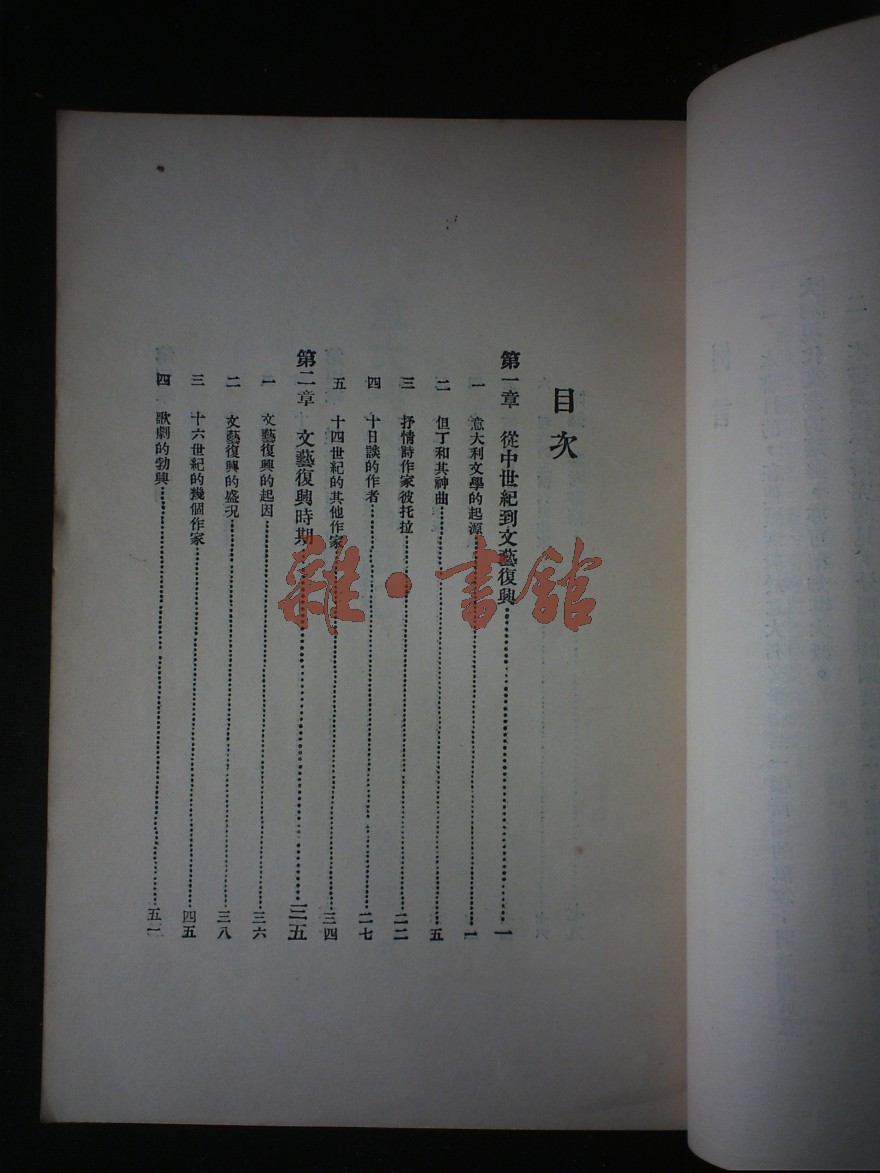 目次
第一章 從中世紀到文藝復興 一
一 意大利文學的起源 一
二 但丁和其神曲 五
三 抒情詩作家彼托拉 二二
四 十日談的作者 二七
五 十四世紀的其他作家 三四
第二章 文藝復興時期 三五
一 文藝復興的起因 三六
二 文藝復興的盛况 三八
三 十六世紀的幾個作家 四五
四 歌劇的勃興
雜·書館